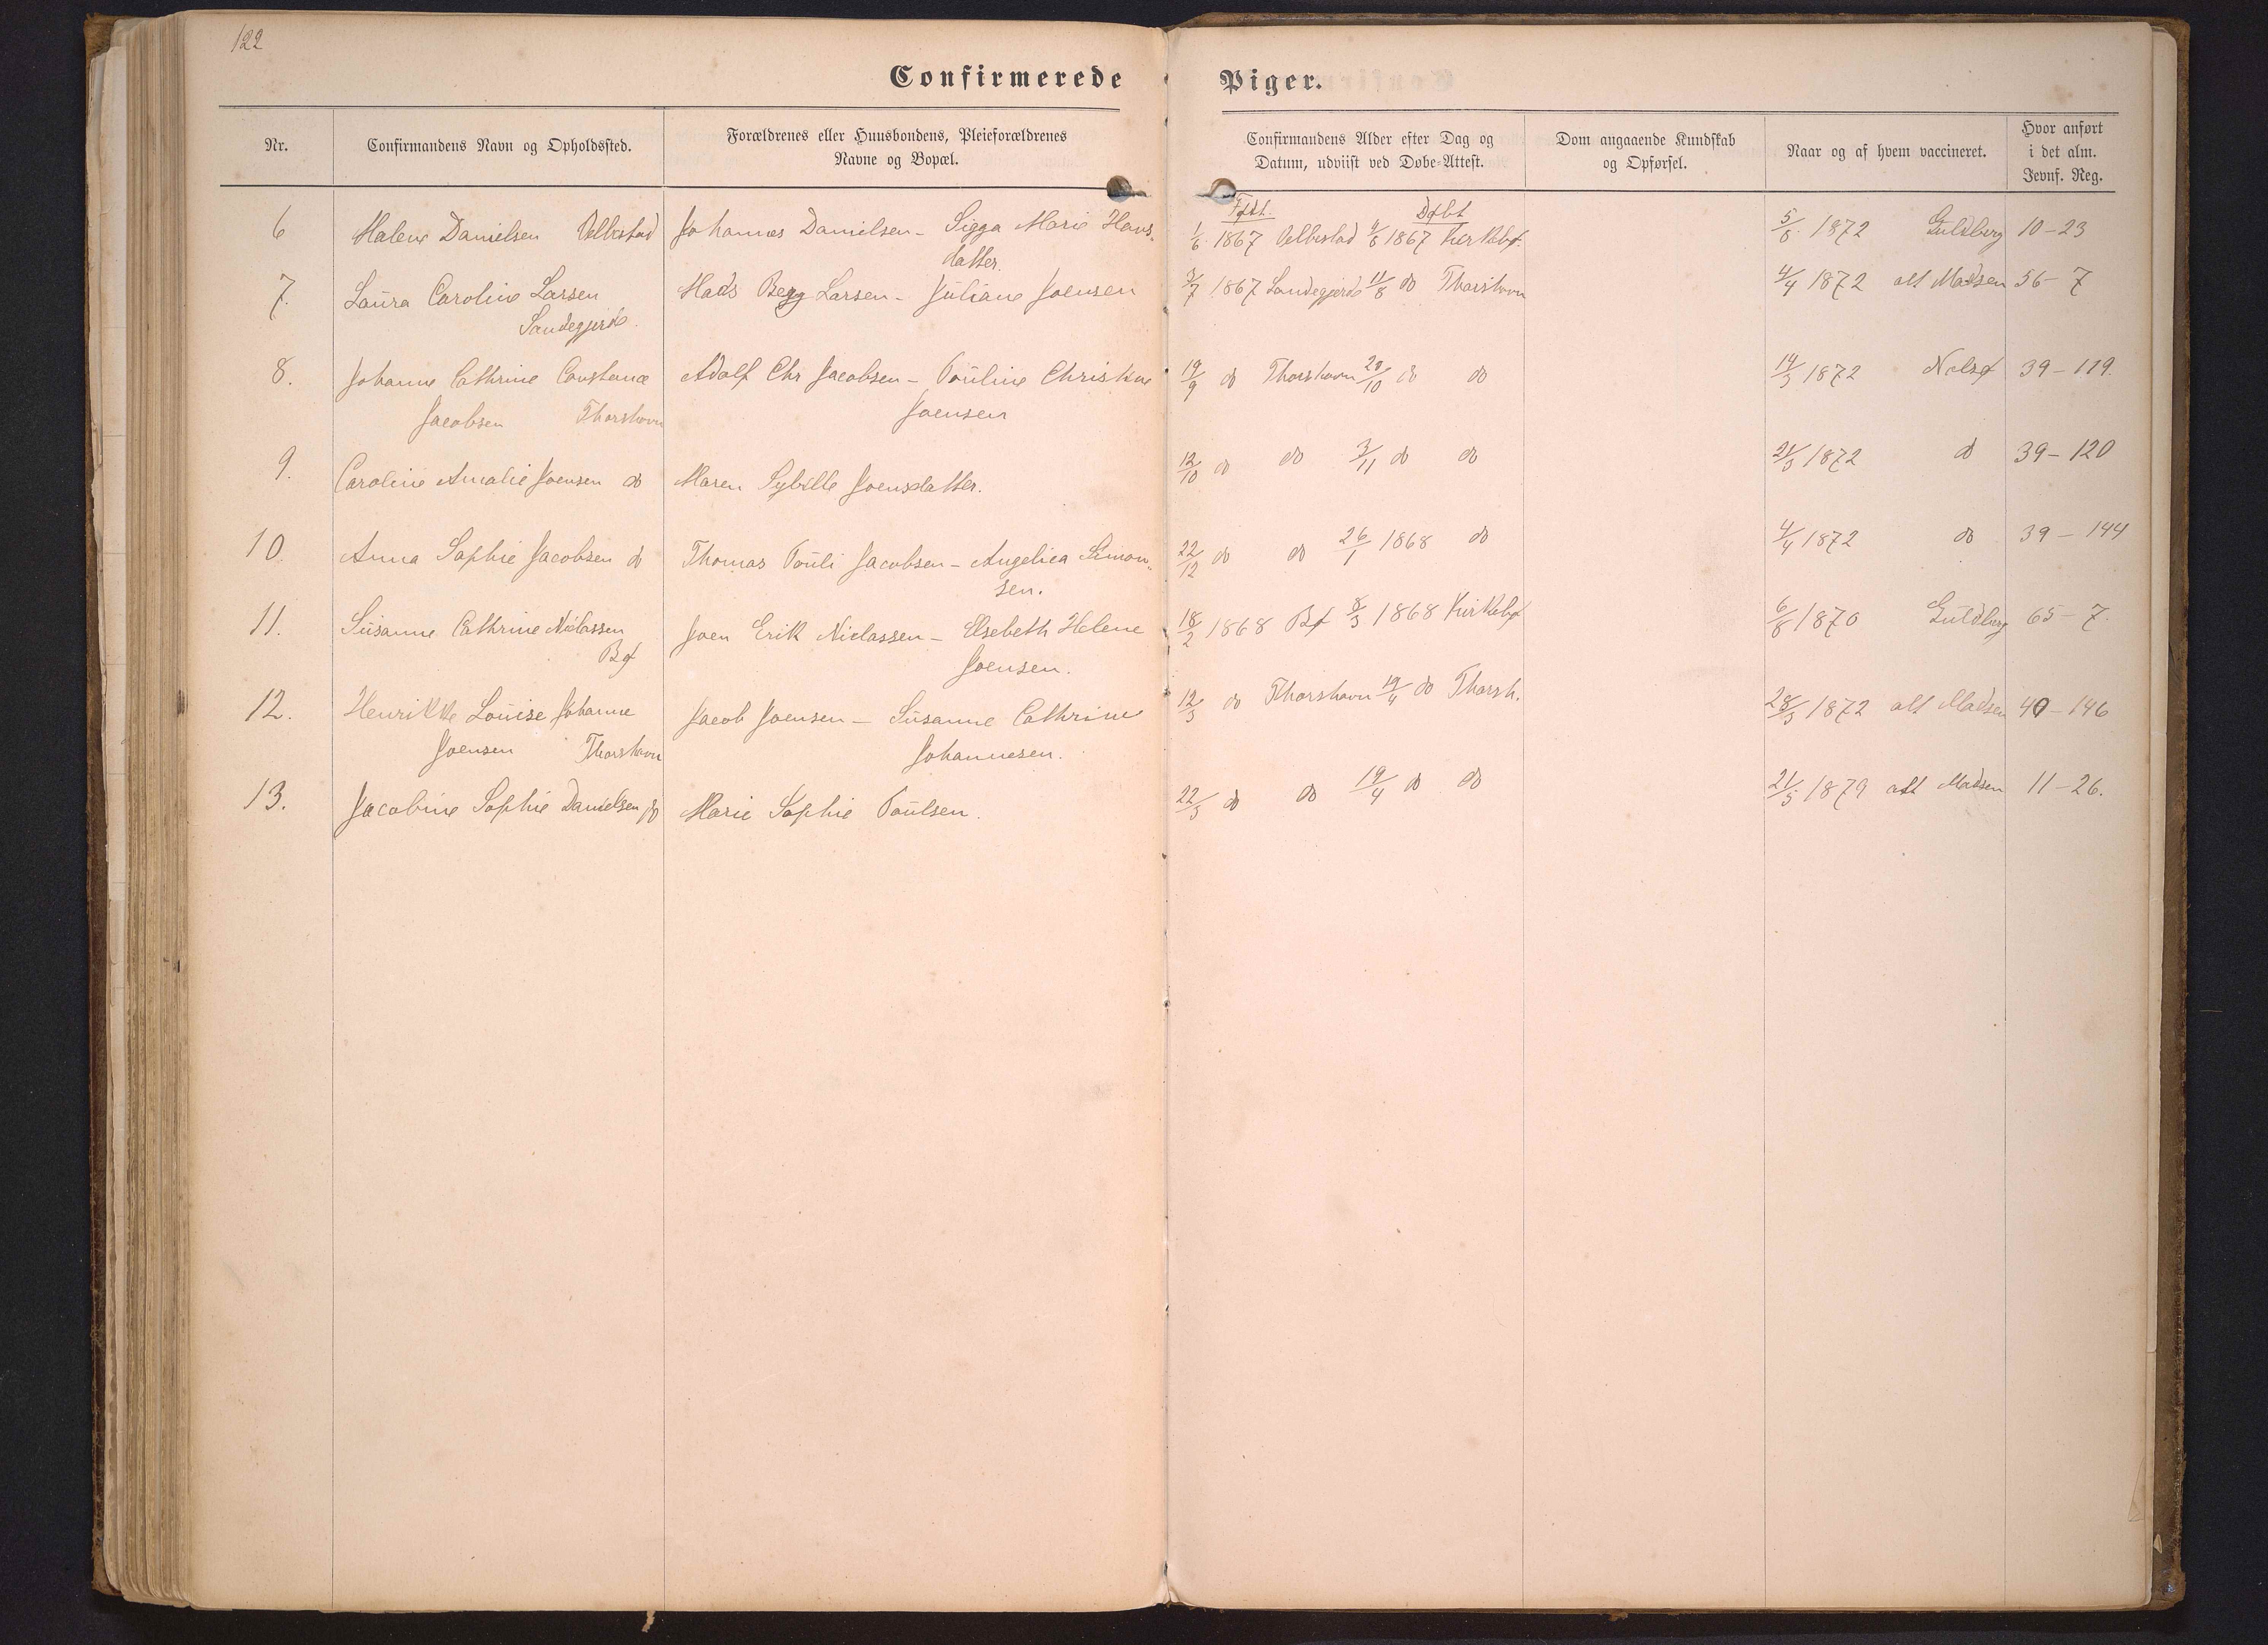 122
Confirmerede Piger.
Nr.
Confirmandens Navn og Opholdssted.
Forældrenes eller Huusbondens, Pleieforældrenes
Navne og Bopæl.
Confirmandens Alder efter Dag og
Datum, udviist ved Døbe-Attest.
Dom angaaende Kundskab
og Opførsel.
Naar og af hvem vaccineret.
Hvor anført
i det alm.
Jevnf. Reg.
Født. Døbt
6 Malene Danielsen Velbestad Johannes Danielsen - Sigga Marie Hans- 1/6 1867 Velbestad 1867 Kirkebø. 1872 Guldberg 10-23
datter.
7. Laura Caroline Larsen Mads Berg Larsen - Juliane Joensen 3/7 1867 Sandegjerde 11/8 do Thorshavn 4/4 1872 alt Madsen 56-7
Sandegjerde.
8. Johanne Cathrine Constance Adolf Chr Jacobsen - Pouline Christine 19/9 do Thorshavn 20/10 do do 14/3 1872 Nolsø 39-119.
Jacobsen Thorshavn Joensen
9. Caroline Amalie Joensen do Maren Sybille Joensdatter. 12/10 do do 3/11 do do 21/3 1872 do 39-120
10. Anna Sophie Jacobsen do Thomas Pouli Jacobsen - Angelica Simon- 22/12 do do 26/1 1868 do 4/4 1872 do 39-144
sen.
11. Susanne Cathrine Niclassen Joen Erik Niclassen - Elsebeth Helene 18/2 1868 Bø 8/3 1868 Kirkebø 6/8 1870 Guldberg 65-7.
Bø Joensen.
12. Henrikke Louise Johanne Jacob Joensen - Susanne Cathrine 12/3 do Thorshavn 19/4 do Thorsh. 28/3 1872 alt Madsen 40-146
Joensen Thorshavn Johannesen.
13. Jacobine Sophie Danielsen do Marie Sophie Poulsen. 22/3 do do 19/4 do do 21/5 1879 alt Madsen 11-26.